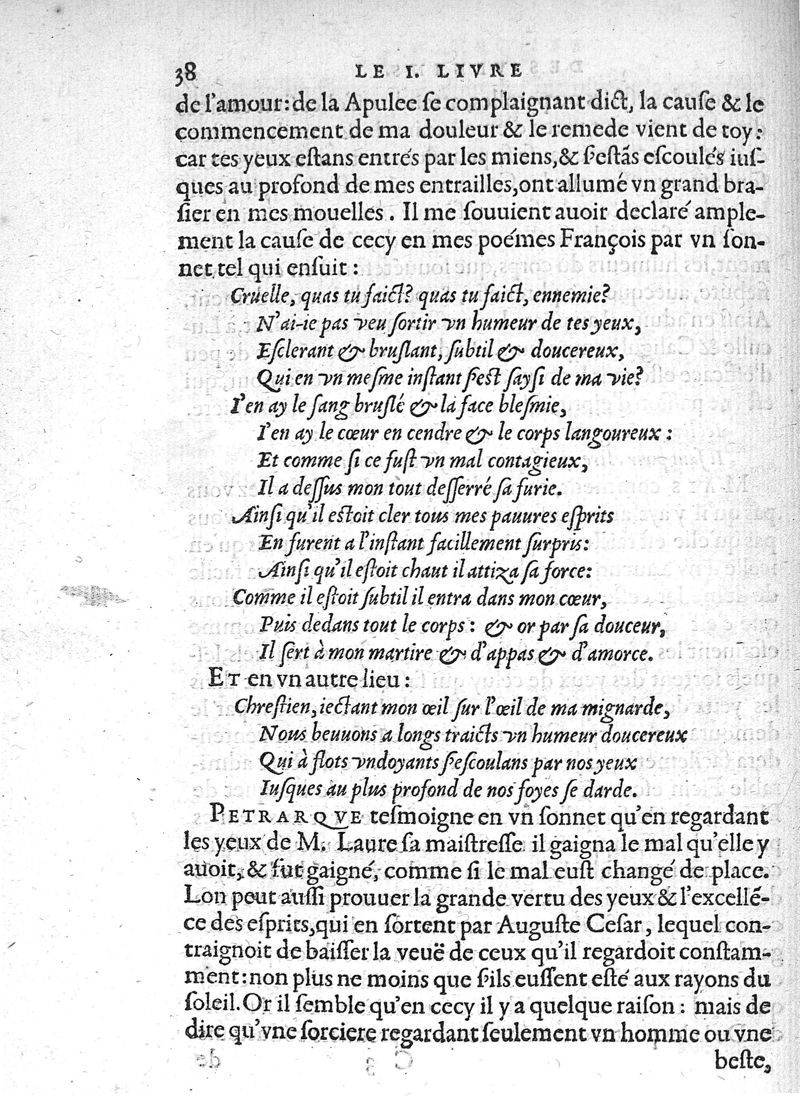 38 LE I. LIVRE
de l'amour: de la Apulee ſe complaignant dict, la cauſe & le
commencement de ma douleur & le remede vient de toy:
car tes yeux eſtans entrés par les miens, & ſ'eſtãs eſcoulés iuſ-
ques au profond de mes entrailles, ont allumé vn grand bra-
ſier en mes mouelles. Il me ſouuient auoir declaré ample-
ment la cauſe de cecy en mes poémes François par vn ſon-
net tel qui enſuit:
Cruelle, quas tu faict? quas tu faict, ennemie?
N'ai-ie pas veu ſortir vn humeur de tes yeux,
Eſclerant & bruſlant, ſubtil & doucereux,
Qui en vn meſme inſtant ſ'eſt ſayſi de ma vie?
I'en ay le ſang bruſlé & la face bleſmie,
I'en ay le cœur en cendre & le corps langoureux:
Et comme ſi ce fuſt vn mal contagieux,
Il a deſſus mon tout deſſerré ſa furie.
Ainſi qu'il eſtoit cler tous mes pauures eſprits
En furent a l'inſtant facillement ſurpris:
Ainſi qu'il eſtoit chaut il attiza ſa force:
Comme il eſtoit ſubtil il entra dans mon cœur,
Puis dedans tout le corps: & or par ſa douceur,
Il ſert à mon martire & d'appas & d'amorce.
ET en vn autre lieu:
Chreſtien, iectant mon œil ſur l'œil de ma mignarde,
Nous beuuons a longs traicts vn humeur doucereux
Qui à flots vndoyants ſ'eſcoulans par nos yeux
Iuſques au plus profond de nos foyes ſe darde.
PETRARQVE teſmoigne en vn ſonnet qu'en regardant
les yeux de M. Laure ſa maiſtreſſe il gaigna le mal qu'elle y
auoit, & fut gaigné, comme ſi le mal euſt changé de place.
Lon peut auſſi prouuer la grande vertu des yeux & l'excellẽ-
ce des eſprits, qui en ſortent par Auguſte Ceſar, lequel con-
traignoit de baiſſer la veuë de ceux qu'il regardoit conſtam-
ment: non plus ne moins que ſ'ils euſſent eſté aux rayons du
ſoleil. Or il ſemble qu'en cecy il y a quelque raiſon: mais de
dire qu'vne ſorciere regardant ſeulement vn homme ou vne
beſte,